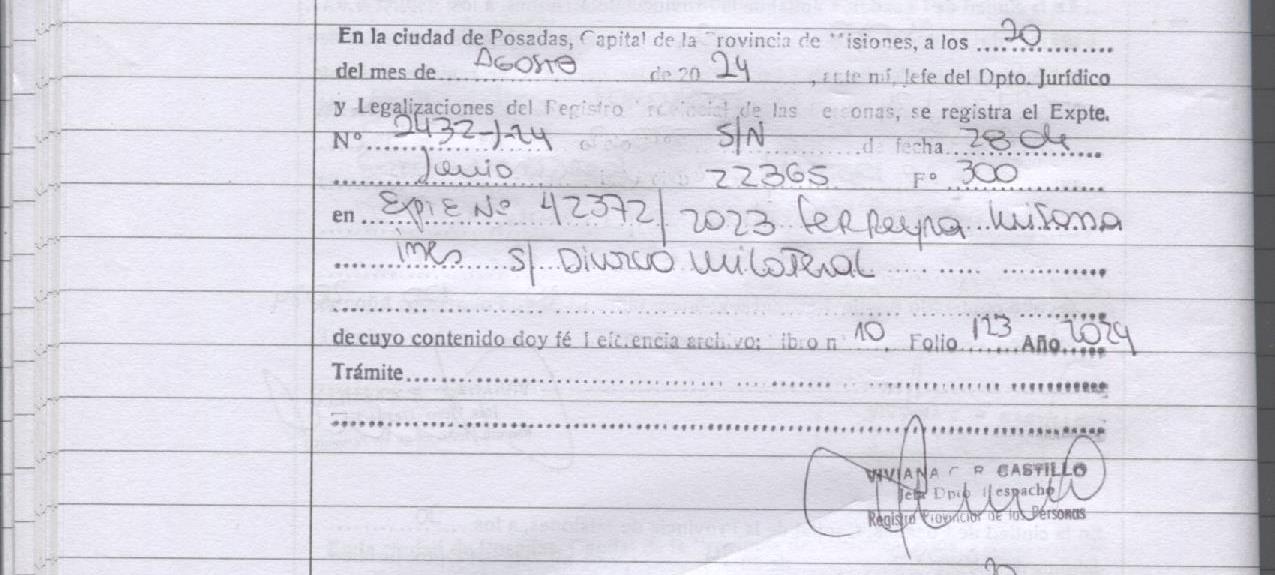 En la ciudad de Posadas, Capital de la Provincia de Misiones, a los 20
del mes de Agosto de 20 24, ante mí, Jefe del Dpto. Jurídico
y Legalizaciones del Registro Provincial de las Personas, se registra el Expte.
Nº 2432-J-24 S/N de fecha 28 de
Junio 22365 Fº 300
en Expte Nº 42372/2023 Ferreyna
Ines S/ Divorcio Unilateral
de cuyo contenido doy fé Referencia archivo: libro nº 10 Folio 123 Año 2024
Trámite
VIVIANA CASTILLO
Jefa Dpto Despacho
Registro Provincial de las Personas